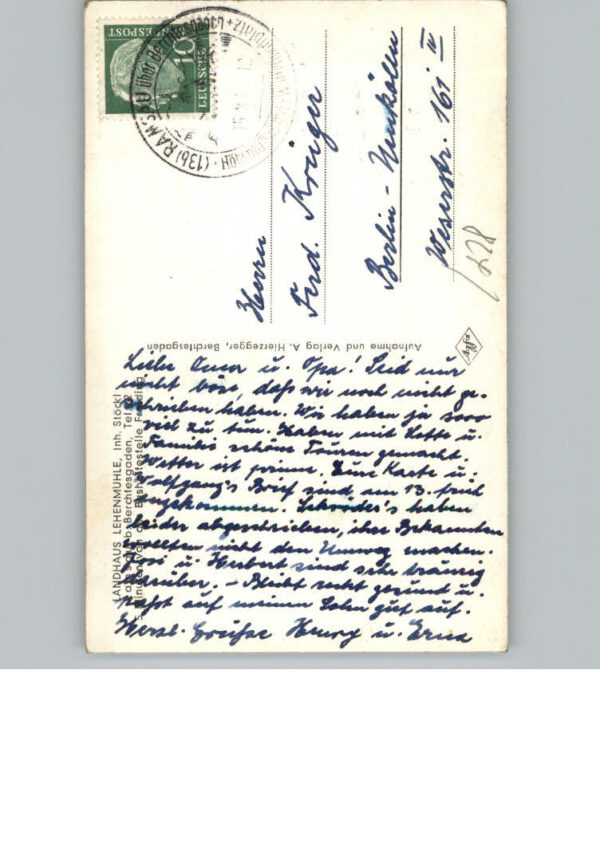 Liebe Oma u. Opa! Seid nur
nicht böse, daß wir noch nicht ge-
schrieben haben. Wir haben ja sooo
viel zu tun. Haben mit Lotte u.
Familie schöne Touren gemacht.
Wetter ist prima. Eure Karte u.
Wolfgang's Brief sind am 13. früh
angekommen. Schröder's haben
leider abgeschrieben, ihre Bekannten
wollten nicht den Umweg machen.
u. Herbert sind sehr traurig
darüber. – Bleibt recht gesund u.
paßt auf meinen Sohn gut auf.
Herzl. Grüße Henry u. Erna
Herrn
Ferd. Krüger
Berlin - Neukölln
Weserstr. 161 IV
LANDHAUS LEHENMÜHLE, Inh. Stöckl
Berchtesgaden, Tel.
Aufnahme und Verlag A. Hierzegger, Berchtesgaden
DEUTSCHE BUNDESPOST
10
(13b) RAMSAU über Berchtesgaden